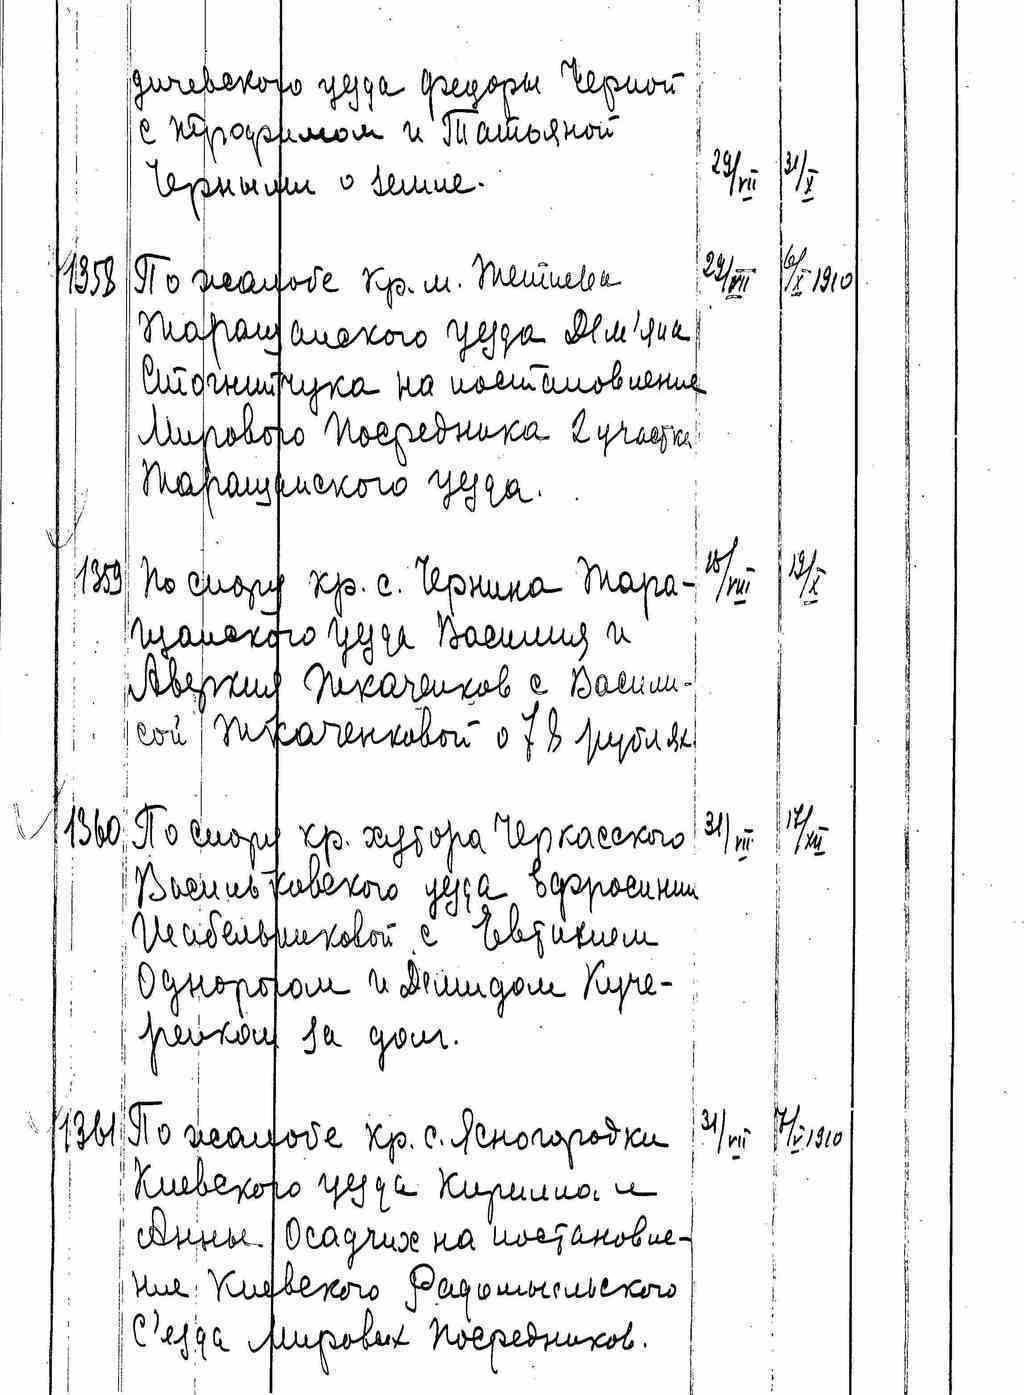 дичевского уезда Федоры Черной
с Трофимом и Татьяной
Черными о земле. 29/VII 31/X
1358 По жалобе кр. м. Тетиева 29/VII 6/X 1910
Таращанского уезда Дем'яна
Стогнитчука на постановление
Мирового Посредника 2 участка
Таращанского уезда.
1359 По спору кр. с. Чернина Тара- /VIII 19/X
щанского уезда Василия и
Аверкия Ткаченков с Васили-
сой Ткаченковой о 78 рублях
1360 По спору кр. хутора Черкасского 31/VII 17/XII
Васильковского уезда Ефросинии
с Евтихием
Однорогом и Демидом Куче-
ренком за долг.
1361 По жалобе кр. с. Ясногородки 31/VII 7/V 1910
Киевского уезда Кирилла и
Анны Осадчих на постановле-
ние Киевского Радомысльского
С'езда Мировых Посредников.